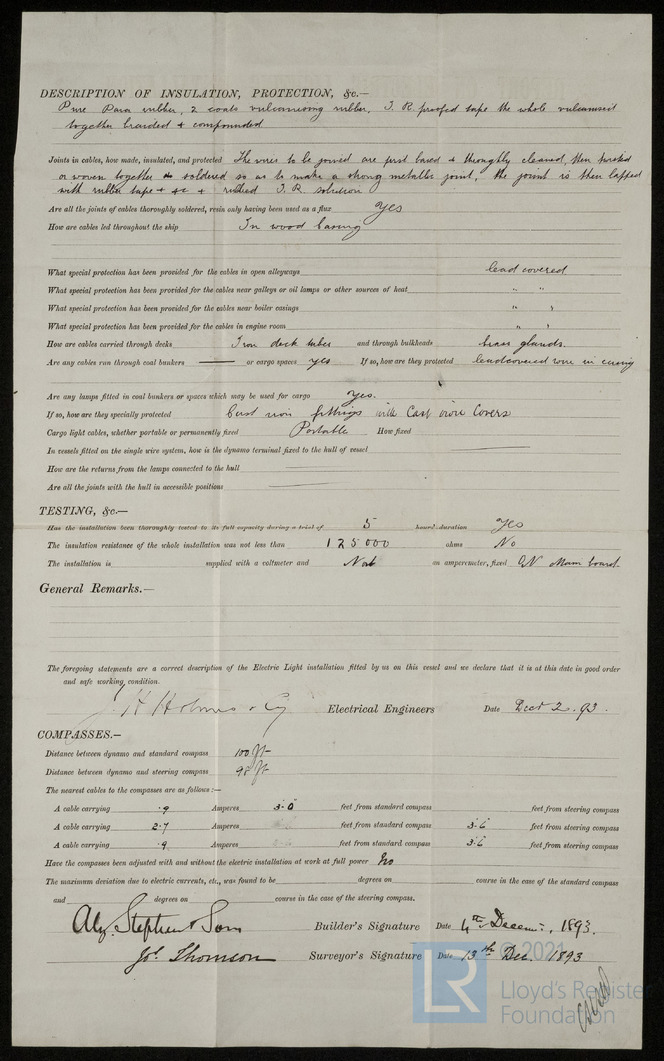 DESCRIPTION OF INSULATION, PROTECTION, &c.—
Pure Para rubber, 2 coats vulcanising rubber, I.R. proofed tape the whole vulcanised
together braided & compounded
Joints in cables, how made, insulated, and protected The wires to be joined are first bared & throughly cleaned, then twisted
or woven together & soldered so as to make a strong metallic joint, the joint is then lapped
with rubber tape & &c & rubbed I.R. solution
Are all the joints of cables thoroughly soldered, resin only having been used as a flux Yes
How are cables led throughout the ship In wood casing
What special protection has been provided for the cables in open alleyways lead covered
What special protection has been provided for the cables near galleys or oil lamps or other sources of heat " "
What special protection has been provided for the cables near boiler casings " "
What special protection has been provided for the cables in engine room " "
How are cables carried through decks Iron deck tubes and through bulkheads brass glands.
Are any cables run through coal bunkers — or cargo spaces yes If so, how are they protected leadcovered wire in casing
Are any lamps fitted in coal bunkers or spaces which may be used for cargo yes.
If so, how are they specially protected Cast iron fittings with Cast iron Covers
Cargo light cables, whether portable or permanently fixed Portable How fixed
In vessels fitted on the single wire system, how is the dynamo terminal fixed to the hull of vessel —
How are the returns from the lamps connected to the hull —
Are all the joints with the hull in accessible positions —
TESTING, &c.—
Has the installation been thoroughly tested to its full capacity during a trial of 5 hours duration Yes
The insulation resistance of the whole installation was not less than 125000 ohms No
The installation is supplied with a voltmeter and Not an amperemeter, fixed ON Main board.
General Remarks.—
The foregoing statements are a correct description of the Electric Light installation fitted by us on this vessel and we declare that it is at this date in good order
and safe working condition.
J. H. Holmes & Co Electrical Engineers Date Decr 2. 93.
COMPASSES.—
Distance between dynamo and standard compass 100 ft
Distance between dynamo and steering compass 98 ft
The nearest cables to the compasses are as follows:—
A cable carrying .9 Amperes 3.0 feet from standard compass feet from steering compass
A cable carrying 2.7 Amperes feet from standard compass 3.6 feet from steering compass
A cable carrying .9 Amperes feet from standard compass 3.6 feet from steering compass
Have the compasses been adjusted with and without the electric installation at work at full power No
The maximum deviation due to electric currents, etc., was found to be degrees on course in the case of the standard compass
and degrees on course in the case of the steering compass.
Alex. Stephen & Sons Builder's Signature Date 4th Decem., 1893.
Jas. Thomson Surveyor's Signature Date 13th Dec. 1893
© 2021
LR
Lloyd's Register
Foundation